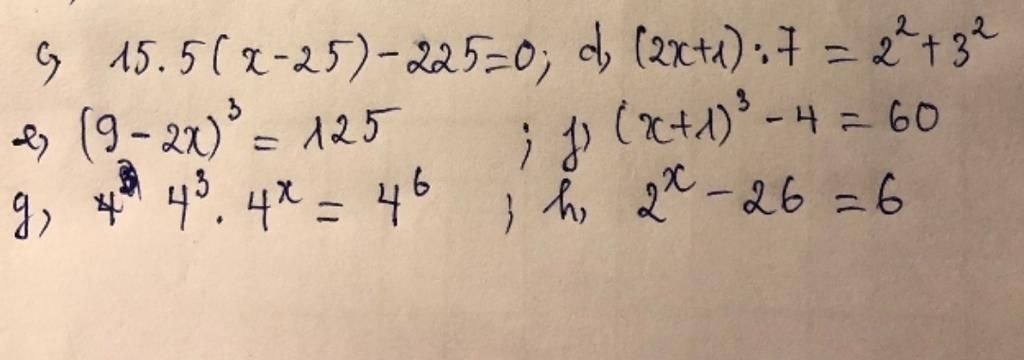 c, 15.5(x-25)-225=0; d, (2x+1):7 = 2²+3²
e, (9-2x)³ = 125 ; f, (x+1)³ - 4 = 60
g, 4³ . 4ˣ = 4⁶ ; h, 2ˣ - 26 = 6